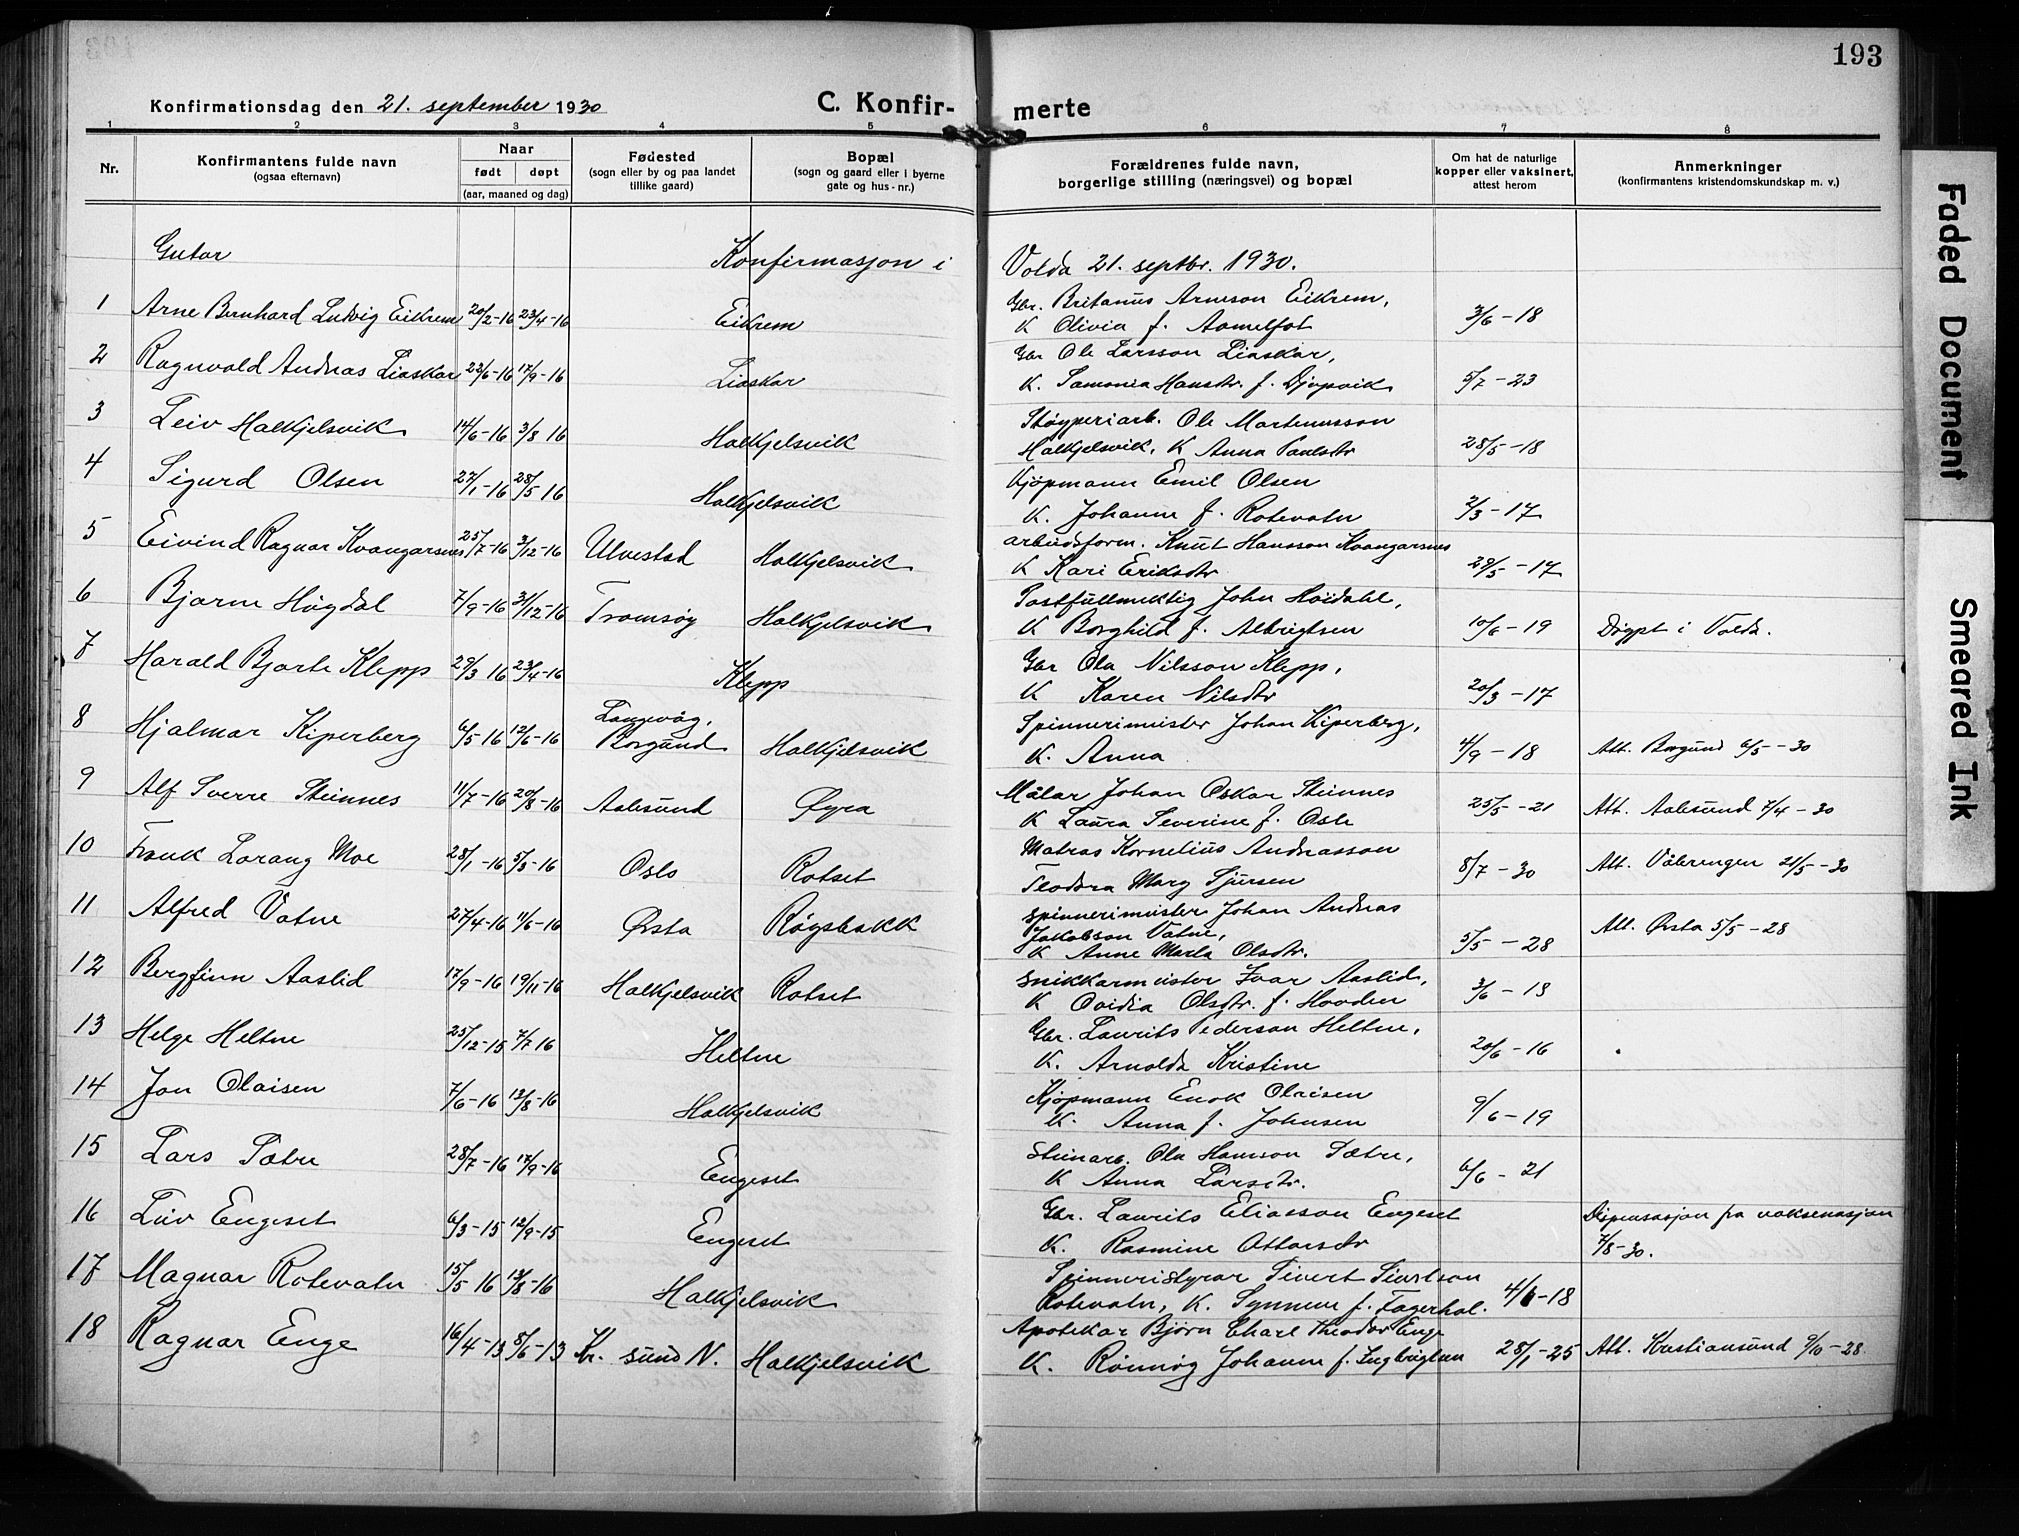 193
Konfirmationsdag den 21. september 1930
C. Konfir- merte
1 2 3 4 5 6 7 8
Nr.
Konfirmantens fulde navn
(ogsaa efternavn)
Naar
født døpt
(aar, maaned og dag)
Fødested
(sogn eller by og paa landet
tillike gaard)
Bopæl
(sogn og gaard eller i byerne
gate og hus-nr.)
Forældrenes fulde navn,
borgerlige stilling (næringsvei) og bopæl
Om hat de naturlige
kopper eller vaksinert,
attest herom
Anmerkninger
(konfirmantens kristendomskundskap m. v.)
Gutar Konfirmasjon i Volda 21. septbr. 1930.
1 Arne Bernhard Ludvig Eikrem 20/2-16 23/4-16 Eikrem Gbr. Britanus Arneson Eikrem,
K Olivia f. Aamelfot 3/6-18
2 Ragnvald Andreas Liaskar 23/6-16 17/9-16 Liaskar Gbr Ole Larsson Liaskar,
K. Samonia Hansdtr. f. Djupvik 5/7-23
3 Leiv Halkjelsvik 14/6-16 3/8 16 Halkjelsvik Støyperiarb. Ole Martenusson
Halkjelsvik, K Anna Paulsdtr 28/5-18
4 Sigurd Olsen 27/1-16 28/5 16 Halkjelsvik Kjøpmann Emil Olsen
K. Johanne f. Rotevatn 2/3-17
5 Eivind Ragnar Kvangarsnes 25/7-16 3/12-16 Ulvestad Halkjelsvik arbeidsform. Knut Hansson Kvangarsnes
K Kari Eriksdtr 29/5-17
6 Bjarne Høgdal 7/9-16 31/12-16 Tromsøy Halkjelsvik Postfullmektig John Høidahl,
K Borghild f. Albrigtsen 10/6-19 Døypt i Volda.
7 Harald Bjarte Klepp 29/3 16 23/4-16 Klepp Gbr Ola Nilsson Klepp,
K Karen Nilsdtr 20/3-17
8 Hjalmar Kiperberg 6/5 16 12/6-16 Langevåg,
Borgund Halkjelsvik Spinnerimeister Johan Kiperberg,
K. Anna 4/9-18 Att. Borgund 6/5-30
9 Alf Sverre Steinnes 11/7-16 20/8-16 Aalesund Øyra Målar Johan Oskar Steinnes
K Laura Severine f. Osle 25/5-21 Att. Aalesund 7/4-30
10 Frank Lorang Moe 28/1-16 5/3-16 Oslo Rotset Matros Kornelius Andreasson
Teodora Mary Sjursen 8/7-30 Att. Vålerengen 21/5-30
11 Alfred Vatne 27/4-16 11/6-16 Ørsta Røysbakk spinnerimeister Johan Andreas
Jakobson Vatne,
K Anne Marta Olsdtr. 5/5-28 Att. Ørsta 5/5-28
12 Bergfinn Aaslid 17/9-16 19/11-16 Halkjelsvik Rotset snikkarmeister Ivar Aaslid,
K Ovidia Olsdtr. f. Hovden 3/6-18
13 Helge Heltne 25/12-15 7/7 16 Heltne Gbr. Laurits Pederson Heltne,
K. Arnolda Kristine 20/6-16
14 Jon Olaisen 7/6-16 13/8-16 Halkjelsvik Kjøpmann Enok Olaisen
K. Anna f. Johnsen 9/6-19
15 Lars Sætre 28/7-16 17/9-16 Engeset Steinarb. Ola Hansson Sætre,
K Anna Larsdtr. 6/6-21
16 Leiv Engeset 6/3-15 12/9-15 Engeset Gbr. Laurits Eliasson Engeset
K. Rasmine Ottarsdtr Dispensasjon fra vaksenasjon
7/8-30.
17 Magnar Rotevatn 15/5 16 13/8-16 Halkjelsvik Spinneristyrar Sivert Sivertson
Rotevatn, K. Synneve f. Fagerhol. 4/6-18
18 Ragnar Enge 16/4-13 8/6-13 Kr. sund N. Halkjelsvik Apotekar Bjørn Charl Theodor Enge
K. Rønnøg Johanne f. Ingbrigtsen 28/1-25 Att. Kristiansund 9/10-28
Faded Document
Smeared Ink